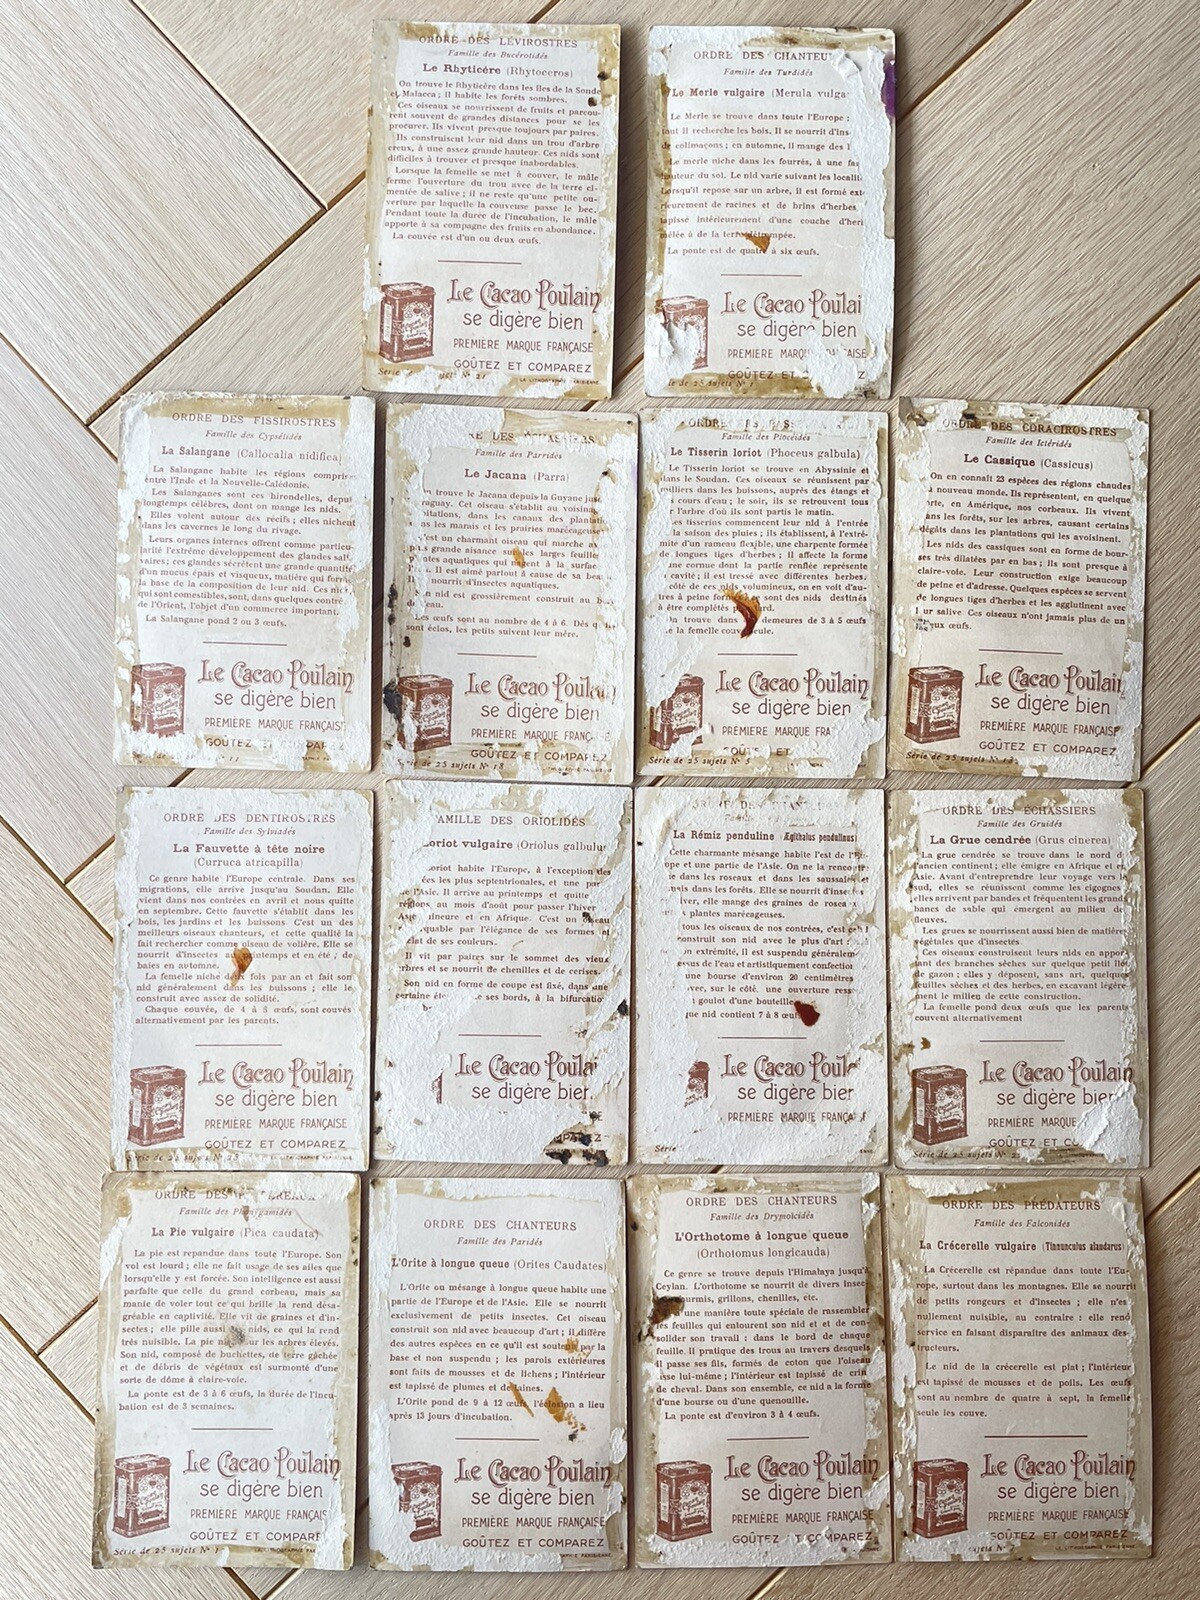 ORDRE DES LÉVIROSTRES
Famille des Bucérotidés
Le Rhyticère (Rhytoceros)
On trouve le Rhyticère dans les îles de la Sonde
et Malacca ; il habite les forêts sombres.
Ces oiseaux se nourrissent de fruits et parcou-
rent souvent de grandes distances pour se les
procurer. Ils vivent presque toujours par paires.
Ils construisent leur nid dans un trou d'arbre
creux, à une assez grande hauteur. Ces nids sont
difficiles à trouver et presque inabordables.
Lorsque la femelle se met à couver, le mâle
ferme l'ouverture du trou avec de la terre ci-
mentée de salive ; il ne reste qu'une petite ou-
verture par laquelle la couveuse passe le bec.
Pendant toute la durée de l'incubation, le mâle
apporte à sa compagne des fruits en abondance.
La couvée est d'un ou deux œufs.
Le Cacao Poulain
se digère bien
PREMIÈRE MARQUE FRANÇAISE
GOÛTEZ ET COMPAREZ
Série sujets N° 21
LA LITHOGRAPHIE PARISIENNE
ORDRE DES CHANTEU
Famille des Turdidés
Le Merle vulgaire (Merula vulga
Le Merle se trouve dans toute l'Europe ;
tout il recherche les bois. Il se nourrit d'ins
de colimaçons ; en automne, il mange des
Le merle niche dans les fourrés, à une fai
hauteur du sol. Le nid varie suivant les localit
Lorsqu'il repose sur un arbre, il est formé ext
rieurement de racines et de brins d'herbes
tapissé intérieurement d'une couche d'her
mêlée à de la terre détrempée.
La ponte est de quatre à six œufs.
Le Cacao Poulai
se digère bien
PREMIÈRE MARQUE FRANÇAISE
GOÛTEZ ET
de 25 sujets N°
ORDRE DES FISSIROSTRES
Famille des Cypsélidés
La Salangane (Callocalia nidifica)
La Salangane habite les régions comprises
entre l'Inde et la Nouvelle-Calédonie.
Les Salanganes sont ces hirondelles, depuis
longtemps célèbres, dont on mange les nids.
Elles volent autour des récifs ; elles nichent
dans les cavernes le long du rivage.
Leurs organes internes offrent comme particu-
larité l'extrême développement des glandes sali
vaires ; ces glandes sécrètent une grande quantité
d'un mucus épais et visqueux, matière qui forme
la base de la composition de leur nid. Ces nids,
qui sont comestibles, sont, dans quelques contrées
de l'Orient, l'objet d'un commerce important.
La Salangane pond 2 ou 3 œufs.
Le Cacao Poulain
se digère bien
PREMIÈRE MARQUE FRANÇAISE
GOÛTEZ ET
DES ÉCHASSIERS
Famille des Parridés
Le Jacana (Parra)
On trouve le Jacana depuis la Guyane jusq
aguay. Cet oiseau s'établit au voisina
bitations, dans les canaux des plantati
les marais et les prairies marécageuses
C'est un charmant oiseau qui marche av
plus grande aisance sur les larges feuille
plantes aquatiques qui nagent à la surface
Il est aimé partout à cause de sa beau
nourrit d'insectes aquatiques.
nid est grossièrement construit au
d'eau.
Les œufs sont au nombre de 4 à 6. Dès q
sont éclos, les petits suivent leur mère.
Le Cacao Poulain
se digère bien
PREMIÈRE MARQUE FRANÇ
GOÛTEZ ET COMPAREZ
Série de 25 sujets N° 18
ORDRE
Famille des Plocéidés
Le Tisserin loriot (Phoceus galbula)
Le Tisserin loriot se trouve en Abyssinie et
dans le Soudan. Ces oiseaux se réunissent par
milliers dans les buissons, auprès des étangs et
cours d'eau ; le soir, ils se retrouvent tous
l'arbre d'où ils sont partis le matin.
Les tisserins commencent leur nid à l'entrée
la saison des pluies ; ils établissent, à l'extré-
mité d'un rameau flexible, une charpente formée
de longues tiges d'herbes ; il affecte la forme
cornue dont la partie renflée représente
cavité ; il est tressé avec différentes herbes.
côté de ces nids volumineux, on en voit d'au-
tres à peine formés ; ce sont des nids destinés
à être complétés
On trouve dans demeures de 3 à 5 œufs
la femelle couve seule.
Le Cacao Poulain
se digère bien
PREMIÈRE MARQUE FRA
GOÛTEZ ET
Série de 25 sujets N° 5
ORDRE DES CORACIROSTRES
Famille des Ictéridés
Le Cassique (Cassicus)
On en connaît 23 espèces des régions chaudes
nouveau monde. Ils représentent, en quelque
sorte, en Amérique, nos corbeaux. Ils vivent
dans les forêts, sur les arbres, causant certains
dégâts dans les plantations qui les avoisinent.
Les nids des cassiques sont en forme de bour-
ses très dilatées par en bas ; ils sont presque à
claire-voie. Leur construction exige beaucoup
de peine et d'adresse. Quelques espèces se servent
de longues tiges d'herbes et les agglutinent avec
leur salive. Ces oiseaux n'ont jamais plus de un
deux œufs.
Le Cacao Poulain
se digère bien
PREMIÈRE MARQUE FRANÇAISE
GOÛTEZ ET COMPAREZ
Série de 25 sujets N°
ORDRE DES DENTIROSTRES
Famille des Sylviadés
La Fauvette à tête noire
(Curruca atricapilla)
Ce genre habite l'Europe centrale. Dans ses
migrations, elle arrive jusqu'au Soudan. Elle
vient dans nos contrées en avril et nous quitte
en septembre. Cette fauvette s'établit dans les
bois, les jardins et les buissons. C'est un des
meilleurs oiseaux chanteurs, et cette qualité la
fait rechercher comme oiseau de volière. Elle se
nourrit d'insectes au printemps et en été ; de
baies en automne.
La femelle niche deux fois par an et fait son
nid généralement dans les buissons ; elle le
construit avec assez de solidité.
Chaque couvée, de 4 à 5 œufs, sont couvés
alternativement par les parents.
Le Cacao Poulain
se digère bien
PREMIÈRE MARQUE FRANÇAISE
GOÛTEZ ET COMPAREZ
Série de 25 sujets N°
FAMILLE DES ORIOLIDÉS
Loriot vulgaire (Oriolus galbulus
Loriot habite l'Europe, à l'exception des
les plus septentrionales, et une par
de l'Asie. Il arrive au printemps et quitte
régions, au mois d'août pour passer l'hiver
Asie mineure et en Afrique. C'est un oiseau
remarquable par l'élégance de ses formes et
éclat de ses couleurs.
Il vit par paires sur le sommet des vieux
arbres et se nourrit de chenilles et de cerises.
Son nid en forme de coupe est fixé, dans une
certaine ses bords, à la bifurcation
Le Cacao Poulai
se digère bien
ORDRE DES CHANTEURS
La Rémiz penduline (Ægithalus pendulinus)
Cette charmante mésange habite l'est de l'Eu-
rope et une partie de l'Asie. On ne la rencontr
dans les roseaux et dans les saussaies
mais dans les forêts. Elle se nourrit d'insec
hiver, elle mange des graines de rosea
plantes marécageuses.
tous les oiseaux de nos contrées, c'est cel
construit son nid avec le plus d'art
extrémité, il est suspendu généraleme
dessus de l'eau et artistiquement confection
une bourse d'environ 20 centimètres
avec, sur le côté, une ouverture ress
goulot d'une bouteille.
que nid contient 7 à 8 œufs
Le Cacao Poula
se digère bien
PREMIÈRE MARQUE FRANÇA
Série
ORDRE DES ÉCHASSIERS
Famille des Gruidés
La Grue cendrée (Grus cinerea)
La grue cendrée se trouve dans le nord de
l'ancien continent ; elle émigre en Afrique et en
Asie. Avant d'entreprendre leur voyage vers le
sud, elles se réunissent comme les cigognes
elles arrivent par bandes et fréquentent les grands
bancs de sable qui émergent au milieu de
fleuves.
Les grues se nourrissent aussi bien de matière
végétales que d'insectes.
Ces oiseaux construisent leurs nids en appor-
tant des branches sèches sur quelque petit îlot
de gazon ; elles y déposent, sans art, quelques
feuilles sèches et des herbes, en excavant légère-
ment le milieu de cette construction.
La femelle pond deux œufs que les parents
couvent alternativement
Le Cacao Poulain
se digère bien
PREMIÈRE MARQUE
GOÛTEZ ET
Série de 25 sujets N°
ORDRE DES PASSEREAUX
Famille des
La Pie vulgaire (Pica caudata)
La pie est repandue dans toute l'Europe. Son
vol est lourd ; elle ne fait usage de ses ailes que
lorsqu'elle y est forcée. Son intelligence est aussi
parfaite que celle du grand corbeau, mais sa
manie de voler tout ce qui brille la rend désa-
gréable en captivité. Elle vit de graines et d'in-
sectes ; elle pille aussi les nids, ce qui la rend
très nuisible. La pie niche sur les arbres élevés.
Son nid, composé de buchettes, de terre gâchée
et de débris de végétaux est surmonté d'une
sorte de dôme à claire-voie.
La ponte est de 3 à 6 œufs, la durée de l'incu-
bation est de 3 semaines.
Le Cacao Poulain
se digère bien
PREMIÈRE MARQUE FRANÇAISE
GOÛTEZ ET COMPAREZ
Série de 25 sujets N°
ORDRE DES CHANTEURS
Famille des Paridés
L'Orite à longue queue (Orites Caudates)
L'Orite ou mésange à longue queue habite une
partie de l'Europe et de l'Asie. Elle se nourrit
exclusivement de petits insectes. Cet oiseau
construit son nid avec beaucoup d'art ; il diffère
des autres espèces en ce qu'il est soutenu par la
base et non suspendu ; les parois extérieures
sont faits de mousses et de lichens ; l'intérieur
est tapissé de plumes et de laines.
L'Orite pond de 9 à 12 œufs, l'éclosion a lieu
après 13 jours d'incubation.
Le Cacao Poulain
se digère bien
PREMIÈRE MARQUE FRANÇAISE
GOÛTEZ ET COMPAREZ
ORDRE DES CHANTEURS
Famille des Drymoïcidés
L'Orthotome à longue queue
(Orthotomus longicauda)
Ce genre se trouve depuis l'Himalaya jusqu'à
Ceylan. L'orthotome se nourrit de divers insec-
fourmis, grillons, chenilles, etc.
une manière toute spéciale de rassembler
les feuilles qui entourent son nid et et de con-
solider son travail : dans le bord de chaque
feuille. Il pratique des trous au travers desquels
il passe ses fils, formés de coton que l'oiseau
tisse lui-même ; l'intérieur est tapissé de crin
de cheval. Dans son ensemble, ce nid a la forme
d'une bourse ou d'une quenouille.
La ponte est d'environ 3 à 4 œufs.
Le Cacao Poulain
se digère bien
PREMIÈRE MARQUE FRANÇAISE
GOÛTEZ ET COMPAREZ
ORDRE DES PRÉDATEURS
Famille des Falconidés
La Crécerelle vulgaire (Tinnunculus alaudarus)
La Crécerelle est répandue dans toute l'Eu-
rope, surtout dans les montagnes. Elle se nourrit
de petits rongeurs et d'insectes ; elle n'est
nullement nuisible, au contraire : elle rend
service en faisant disparaître des animaux des-
tructeurs.
Le nid de la crécerelle est plat ; l'intérieur
est tapissé de mousses et de poils. Les œufs
sont au nombre de quatre à sept, la femelle
seule les couve.
Le Cacao Poulain
se digère bien
PREMIÈRE MARQUE FRANÇAISE
GOÛTEZ ET COMPAREZ
sujets N°
LA LITHOGRAPHIE PARISIENNE